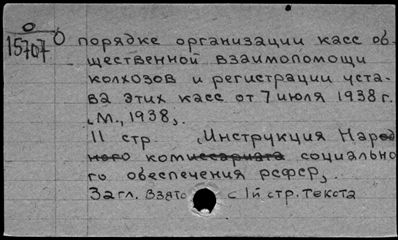 15707 О порядке организации касс об-
щественной взаимопомощи
колхозов и регистрации уста-
ва этих касс от 7 июля 1938 г.
"М., 1938".
11 стр. "Инструкция Народ
ного комиссариата социально
го обеспечения РСФСР".
Загл. взято с 1й стр. текста